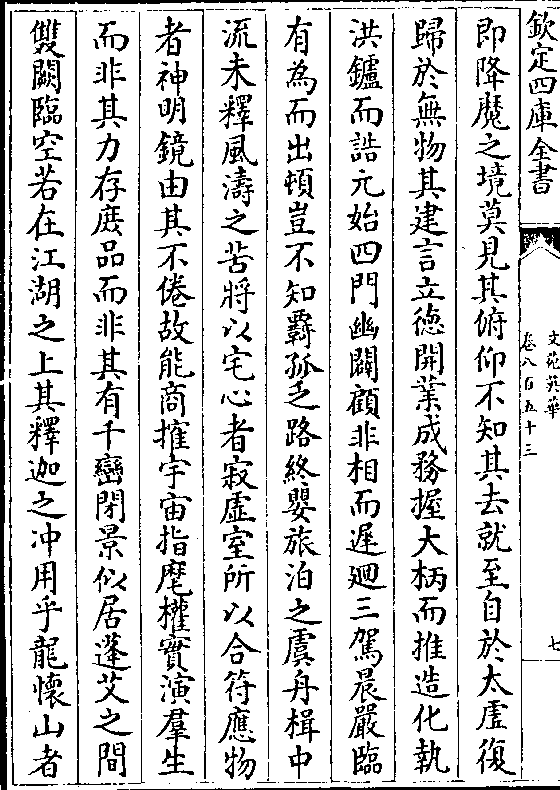 欽定四庫全書
文苑英華
卷八百五十三
七
即降魔之境莫見其俯仰不知其去就至自於太虛復
歸於無物其建言立德開業成務握大柄而推造化執
洪鑪而詰元始四門幽闢顧非相而遲迴三駕晨嚴臨
有為而出頓豈不知羈孤乏路終嬰旅泊之虞舟楫中
流未釋風濤之苦將以宅心者寂虛室所以合符應物
者神明鏡由其不倦故能商搉宇宙指麾權實演羣生
而非其力存庶品而非其有千巒閉景似居蓬艾之間
雙闕臨空若在江湖之上其釋迦之冲用乎龍懷山者